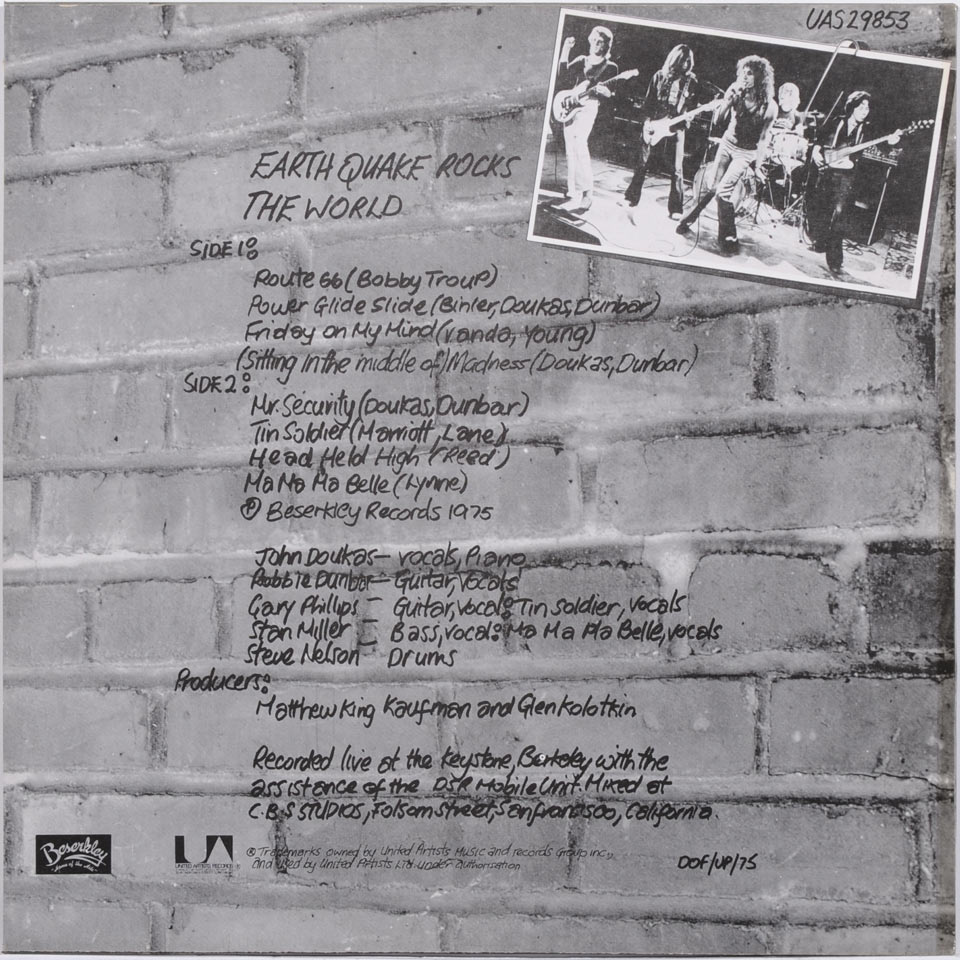 UAS 29853
EARTH QUAKE ROCKS
THE WORLD
SIDE 1:
Route 66 (Bobby Troup)
Power Glide Slide (Binler, Doukas, Dunbar)
Friday on My Mind (Vanda, Young)
(Sitting In the middle of) Madness (Doukas, Dunbar)
SIDE 2:
Mr. Security (Doukas, Dunbar)
Tin Soldier (Marriott, Lane)
Head Held High (Reed)
Ma Ma Ma Belle (Lynne)
Ⓟ Beserkley Records 1975
John Doukas — vocals, Piano
Robbie Dunbar — Guitar, vocals
Gary Phillips — Guitar, vocal: Tin soldier, vocals
Stan Miller — Bass, vocal: Ma Ma Ma Belle, vocals
Steve Nelson — Drums
Producers:
Matthew King Kaufman and Glen Kolotkin
Recorded live at the Keystone, Berkeley with the
assistance of the DSR Mobile Unit. Mixed at
C.B.S STUDIOS, Folsom Street, San francisco, California.
Beserkley
UA
UNITED ARTISTS RECORDS
® Trademarks owned by United Artists Music and records Group inc,,
and used by United Artists LTD. under authorisation
OOF/UP/75